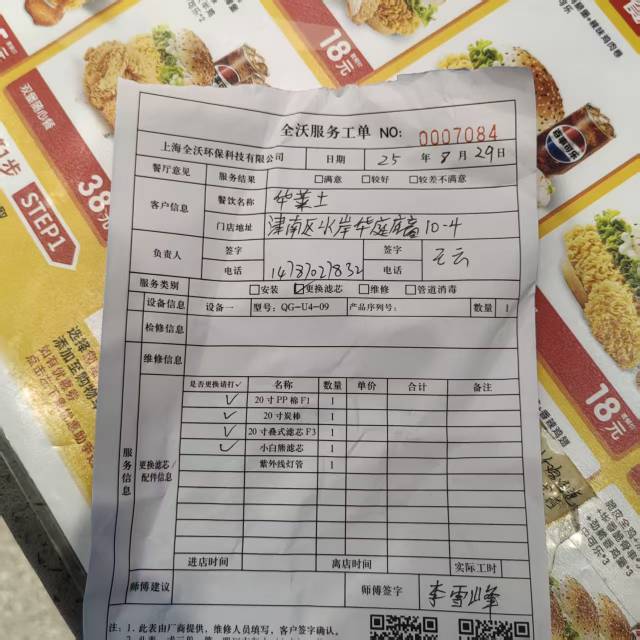 全沃服务工单 NO: 0007084
上海全沃环保科技有限公司 日期 25 年 8 月 29 日
餐厅意见 服务结果 □满意 □较好 □较差不满意
客户信息 餐饮名称 华莱士
门店地址 津南区水岸华庭底商10-4
负责人 签字 签字
电话 14737027832 电话
服务类别 □安装 ☑更换滤芯 □维修 □管道消毒
设备信息 设备一 型号: QG-U4-09 产品序列号: 数量 1
检修信息
维修信息
服务信息
更换滤芯/配件信息
是否更换请打✓ 名称 数量 单价 合计 备注
✓ 20寸PP棉F1 1
✓ 20寸炭棒 1
✓ 20寸叠式滤芯F3 1
✓ 小白熊滤芯 1
紫外线灯管 1
进店时间 离店时间 实际工时
师傅建议 师傅签字 李雪峰
注: 1. 此表由厂商提供, 维修人员填写, 客户签字确认。
18元
38元
STEP1
18元
18元